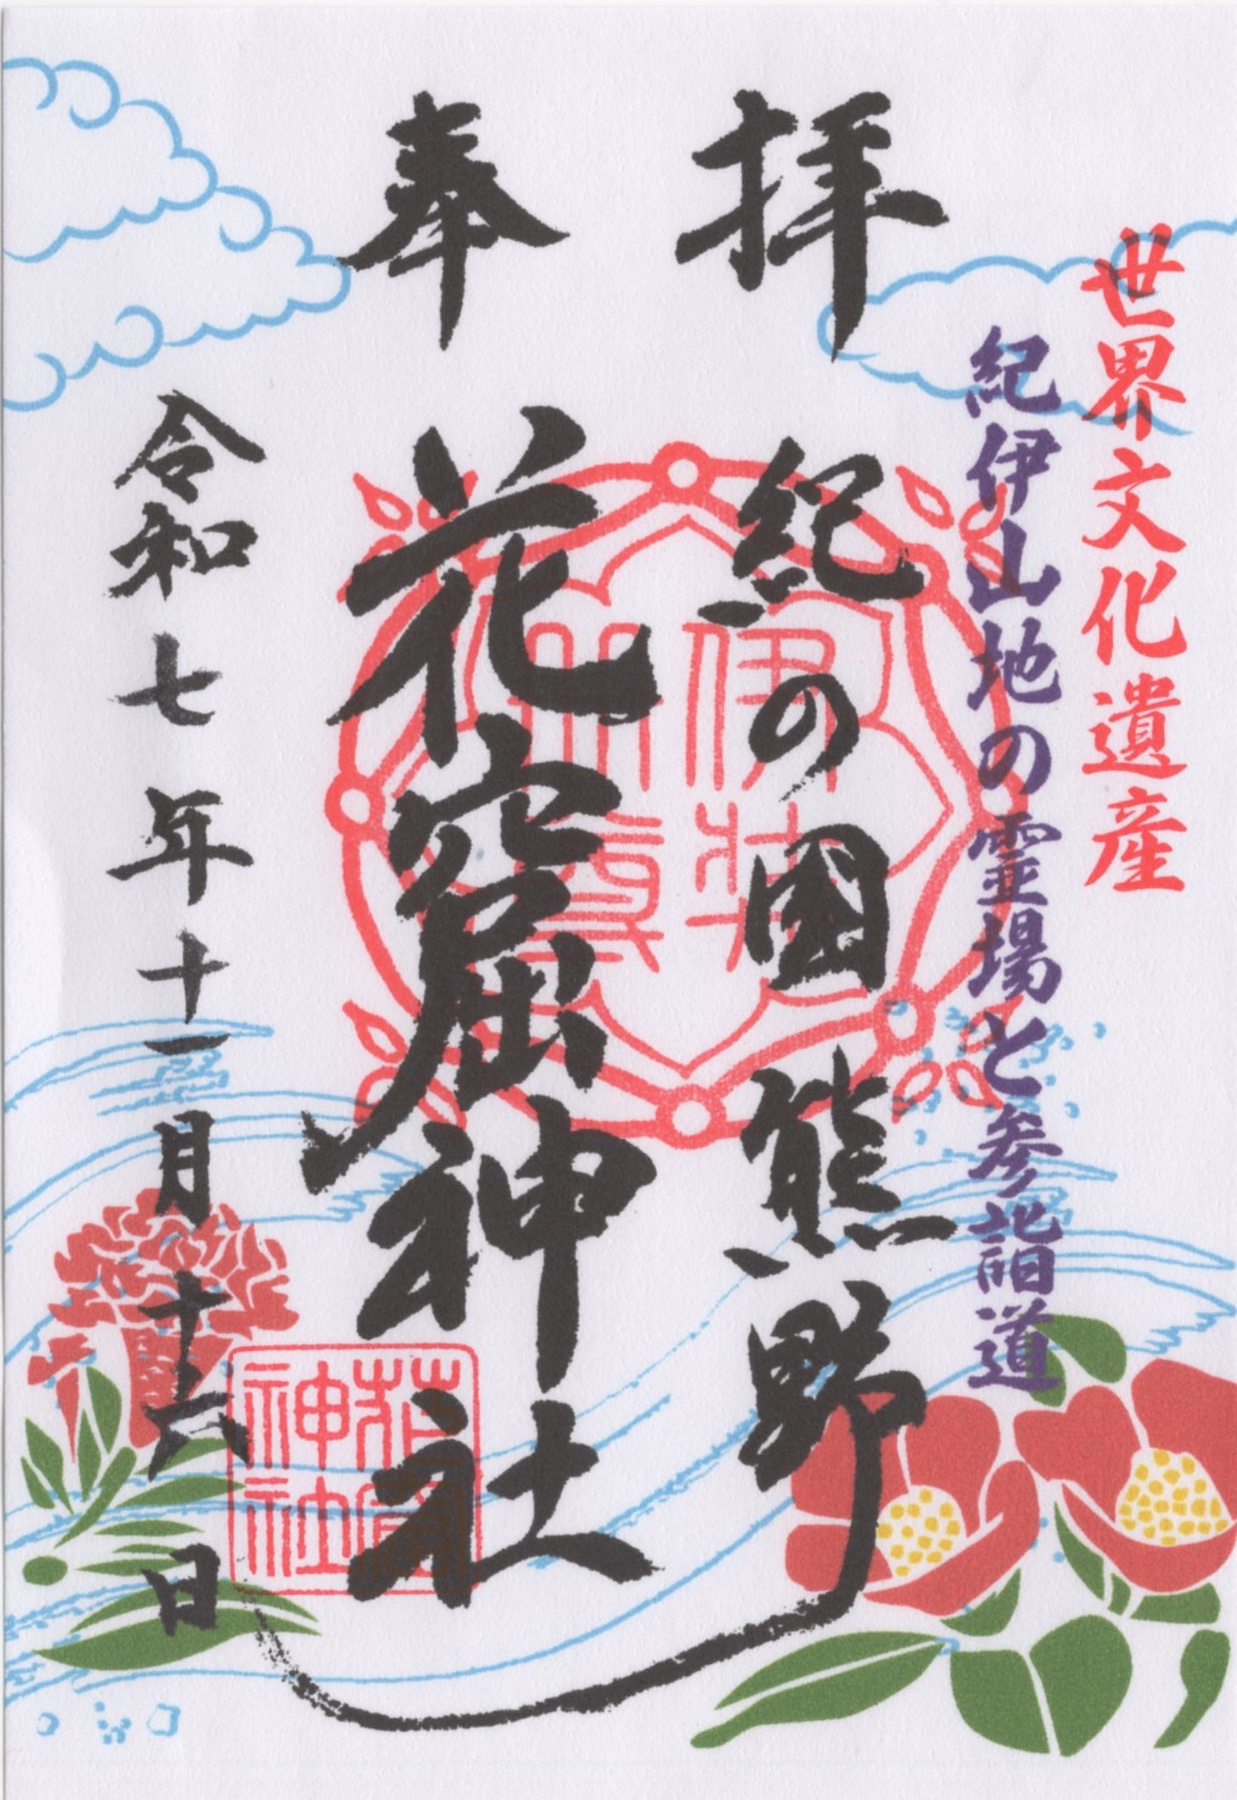 世界文化遺産
紀伊山地の霊場と参詣道
奉拝
紀の國 熊野
花窟神社
令和七年十一月十六日
伊弉
冊尊
花窟
神社